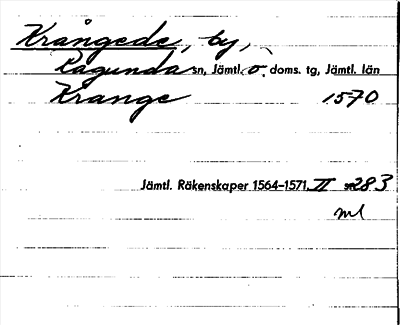 Krångede, by,
Ragunda sn, Jämtl. ö. doms. tg, Jämtl. län
Krange 1570
Jämtl. Räkenskaper 1564-1571, II s 283
ml